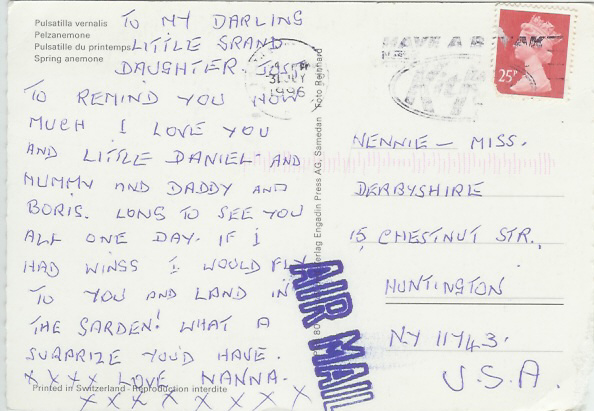 Pulsatilla vernalis
Pelzanemone
Pulsatille du printemps
Spring anemone
TO MY DARLING
LITTLE GRAND
DAUGHTER. JUST
TO REMIND YOU HOW
MUCH I LOVE YOU
AND LITTLE DANIEL AND
MUMMY AND DADDY AND
BORIS. LONG TO SEE YOU
ALL ONE DAY. IF I
HAD WINGS I WOULD FLY
TO YOU AND LAND IN
THE GARDEN! WHAT A
SURPRIZE YOU'D HAVE.
XXXX LOVE NANNA.
X X X X X X X X
Printed in Switzerland - Reproduction interdite
Verlag Engadin Press AG, Samedan Foto Reinhard
31 JLY
1996
HAVE A BREAK
KitKat
25P
NENNIE - MISS.
DERBYSHIRE
15, CHESTNUT STR.,
HUNTINGTON
NY 11743.
U.S.A.
AIR MAIL